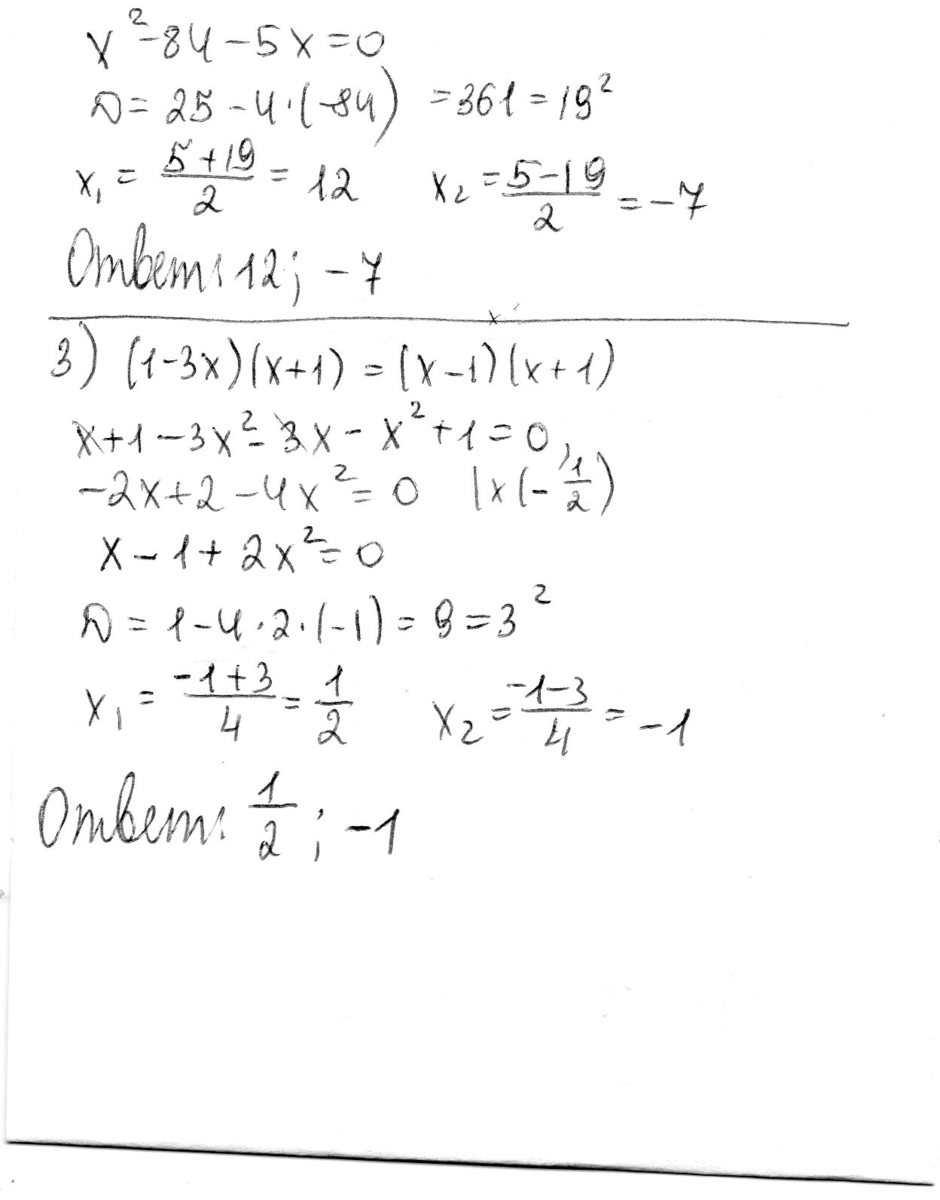 x²-84-5x=0
D=25-4·(-84) =361=19²
x₁ = (5+19)/2 = 12   x₂ = (5-19)/2 = -7
Ответ: 12; -7
3) (1-3x)(x+1) = (x-1)(x+1)
x+1-3x²-3x-x²+1=0
-2x+2-4x²=0 |x(-1/2)
x-1+2x²=0
D = 1-4·2·(-1) = 9 = 3²
x₁ = (-1+3)/4 = 1/2   x₂ = (-1-3)/4 = -1
Ответ: 1/2; -1